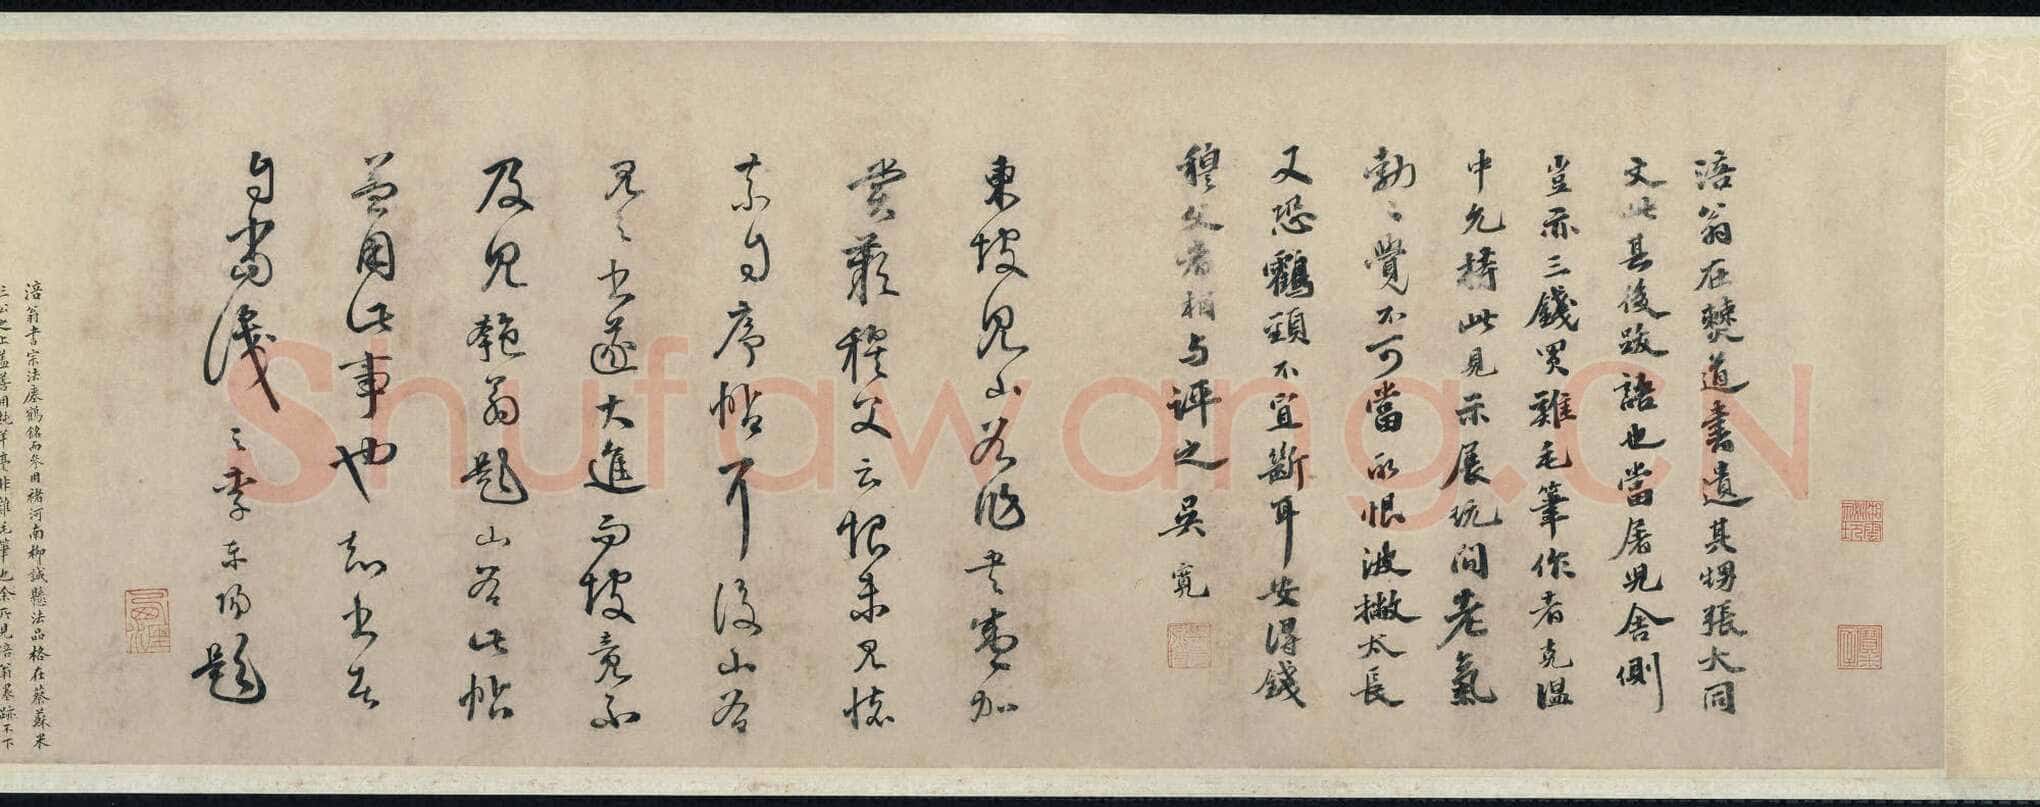 涪翁在僰道書遺其甥張大同
文此其後跋語也當屠児舍側
豈亦三錢買雞毛筆作者克温
中允持此見示展玩間老氣
勃〻覺不可當所恨波撇太長
又恐鶴頸不宜斷耳安得錢
穆父者相与評之吳寬
東坡見山谷作書亟加
賞歎穆父云恨未見懷
素自序帖耳後山谷
見之書遂大進而坡竟不
及見匏翁題山谷此帖
蓋用此事也知書者
自當識之李東陽題
涪翁書宗法瘞鶴銘而參用褚河南柳誠懸法品格在蔡蘇米
三公之上蓋善用純羊毫非雞毛筆也余所見涪翁墨跡不下
Shufawang.CN